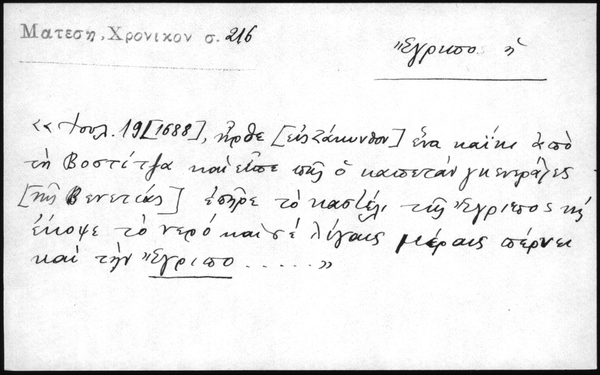 Ματεση, Χρονικον σ. 216
Ἔγριπο ἡ
«Ἰουλ. 19 [1688], ἦρθε [εἰς Ζάκυνθον] ἕνα καΐκι ἀπὸ
τὴ Βοστίτζα καὶ εἶπε πῶς ὁ καπετὰν γκενεράλες
[τῆς Βενετίας] ἐπῆρε τὸ καστέλι τῆς Ἔγριπος κῃ
ἔκοψε τὸ νερὸ καὶ σὲ λίγαις μέραις πέρνει
καὶ τὴν Ἔγριπο .....»